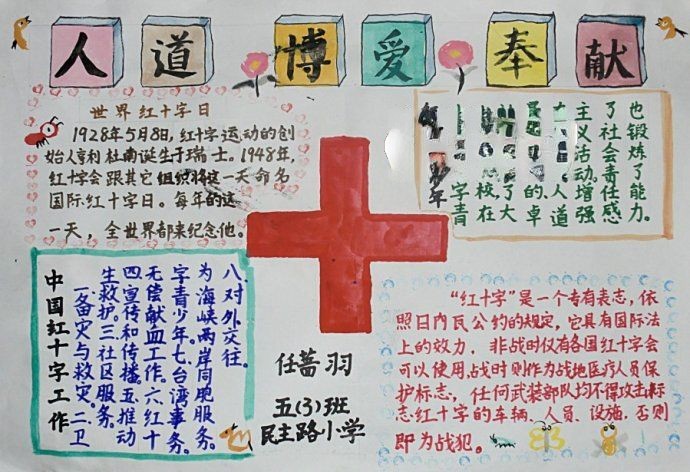 人道博爱奉献
世界红十字日
1928年5月8日,红十字运动的创
始人亨利杜南诞生于瑞士。1948年,
红十字会跟其它组织将这一天命名
国际红十字日。每年的这
一天,全世界都来纪念他。
也锻炼了能力。
了社会责任感
主义活动,增强
人道
的卓
校,在了大
字青
少年
中国红十字工作
一备灾与救灾。二卫
生救护。三社区服务。
四宣传和传播。五推动
无偿献血工作。六.红十
字青少年。七.台湾事务。
为海峡两岸同胞服务。
八对外交往。
任蔷羽
五(3)班
民主路小学
“红十字”是一个专有表志,依
照日内瓦公约的规定,它具有国际法
上的效力.非战时仅有各国红十字会
可以使用,战时则作为战地医疗人员保
护标志,任何武装部队均不得攻击标
志红十字的车辆、人员、设施.否则
即为战犯。